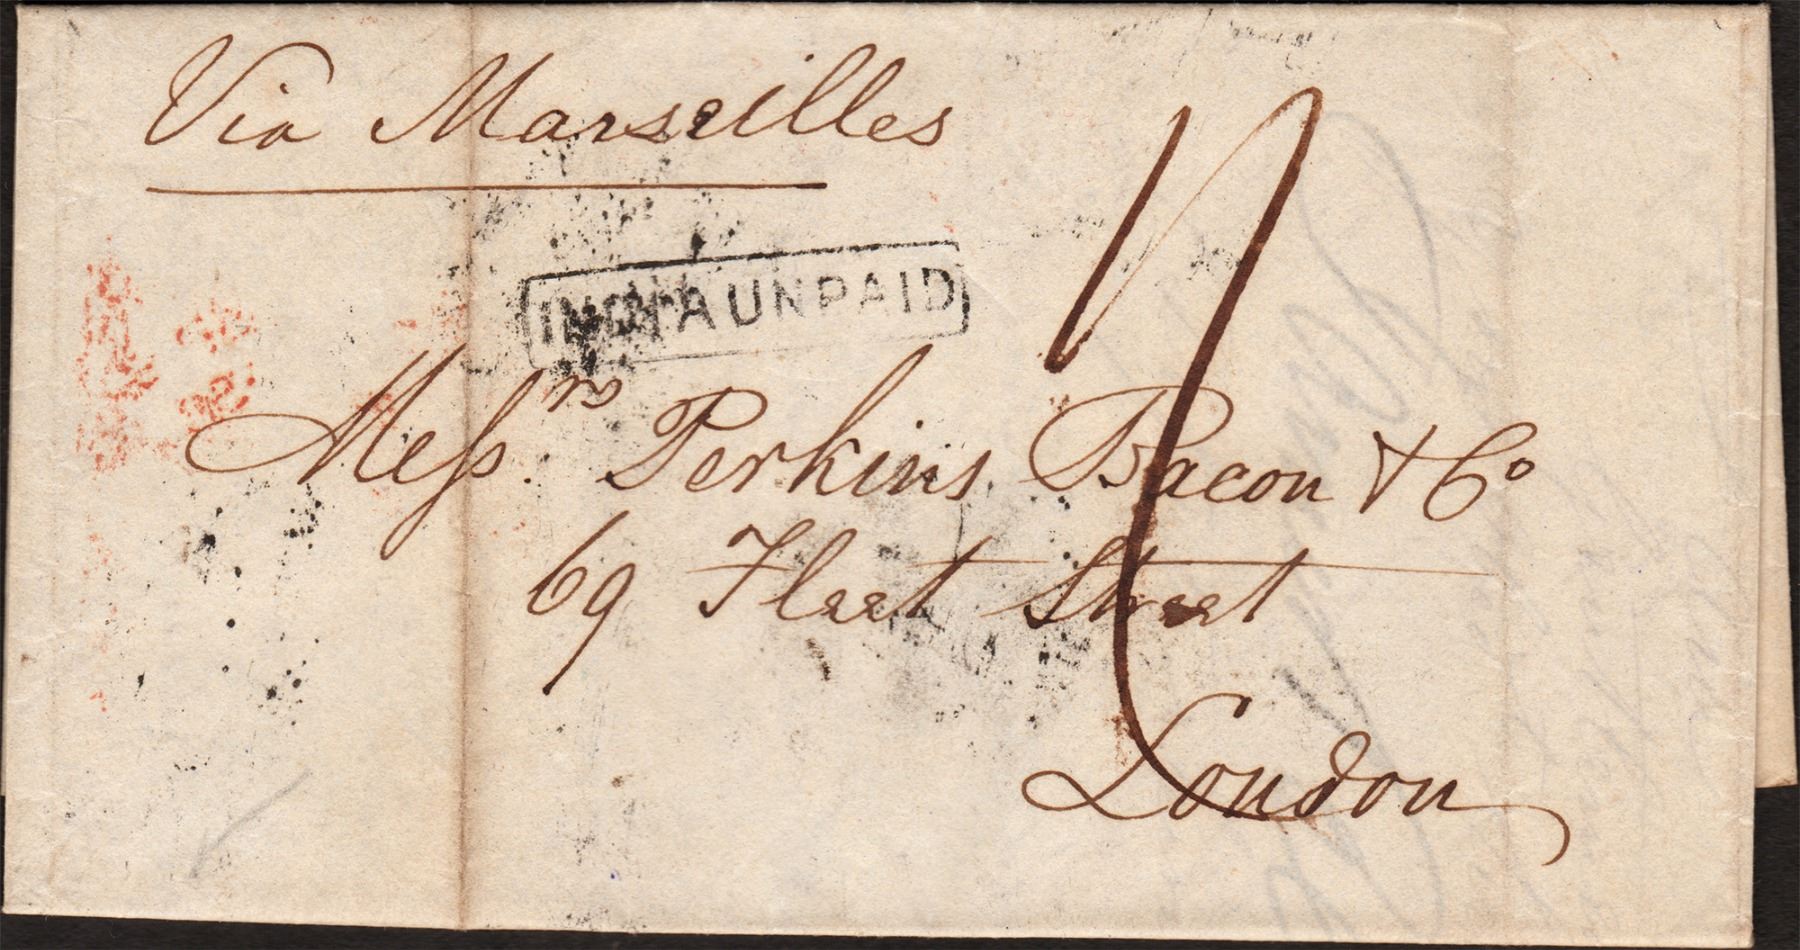 Via Marseilles
INDIA UNPAID
Messrs Perkins Bacon & Co
69 Fleet Street
London